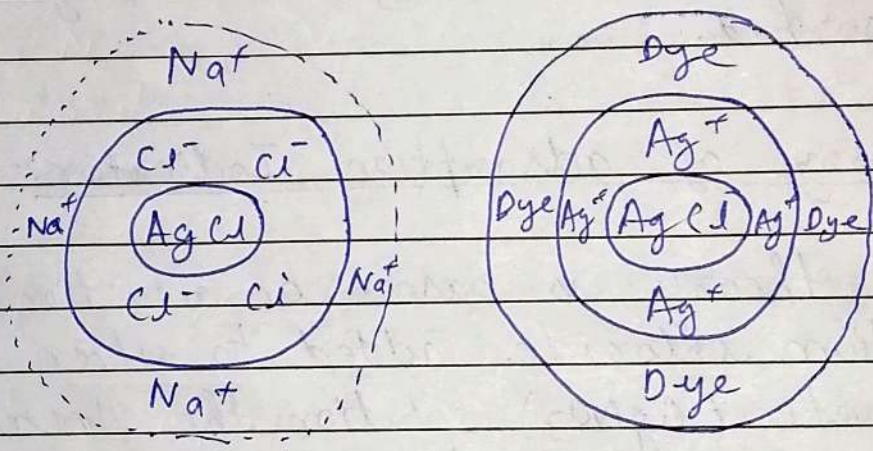 Na⁺
Cl⁻ Cl⁻
Na⁺ AgCl
Cl⁻ Cl Na⁺
Na⁺
Dye
Ag⁺
Dye Ag⁺ AgCl Ag⁺ Dye
Ag⁺
Dye